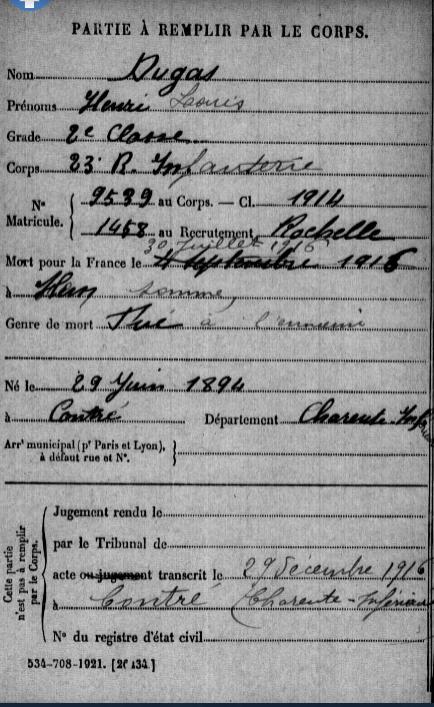 PARTIE À REMPLIR PAR LE CORPS.
Nom Dugas
Prénoms Henri Louis
Grade 2e Classe
Corps 23e R. Infanterie
No Matricule. 9539 au Corps. — Cl. 1914
1458 au Recrutement Rochelle
30 Juillet 1916
Mort pour la France le 4 Septembre 1916
à Hem Somme,
Genre de mort Tué à l'ennemi
Né le 29 Juin 1894
à Contré Département Charente-Infre
Arrt municipal (pr Paris et Lyon), à défaut rue et No.
Cette partie n'est pas à remplir par le Corps.
Jugement rendu le
par le Tribunal de
acte ou jugement transcrit le 29 décembre 1916
à Contré Charente-Inférieure
No du registre d'état civil
534-708-1921. [26434.]